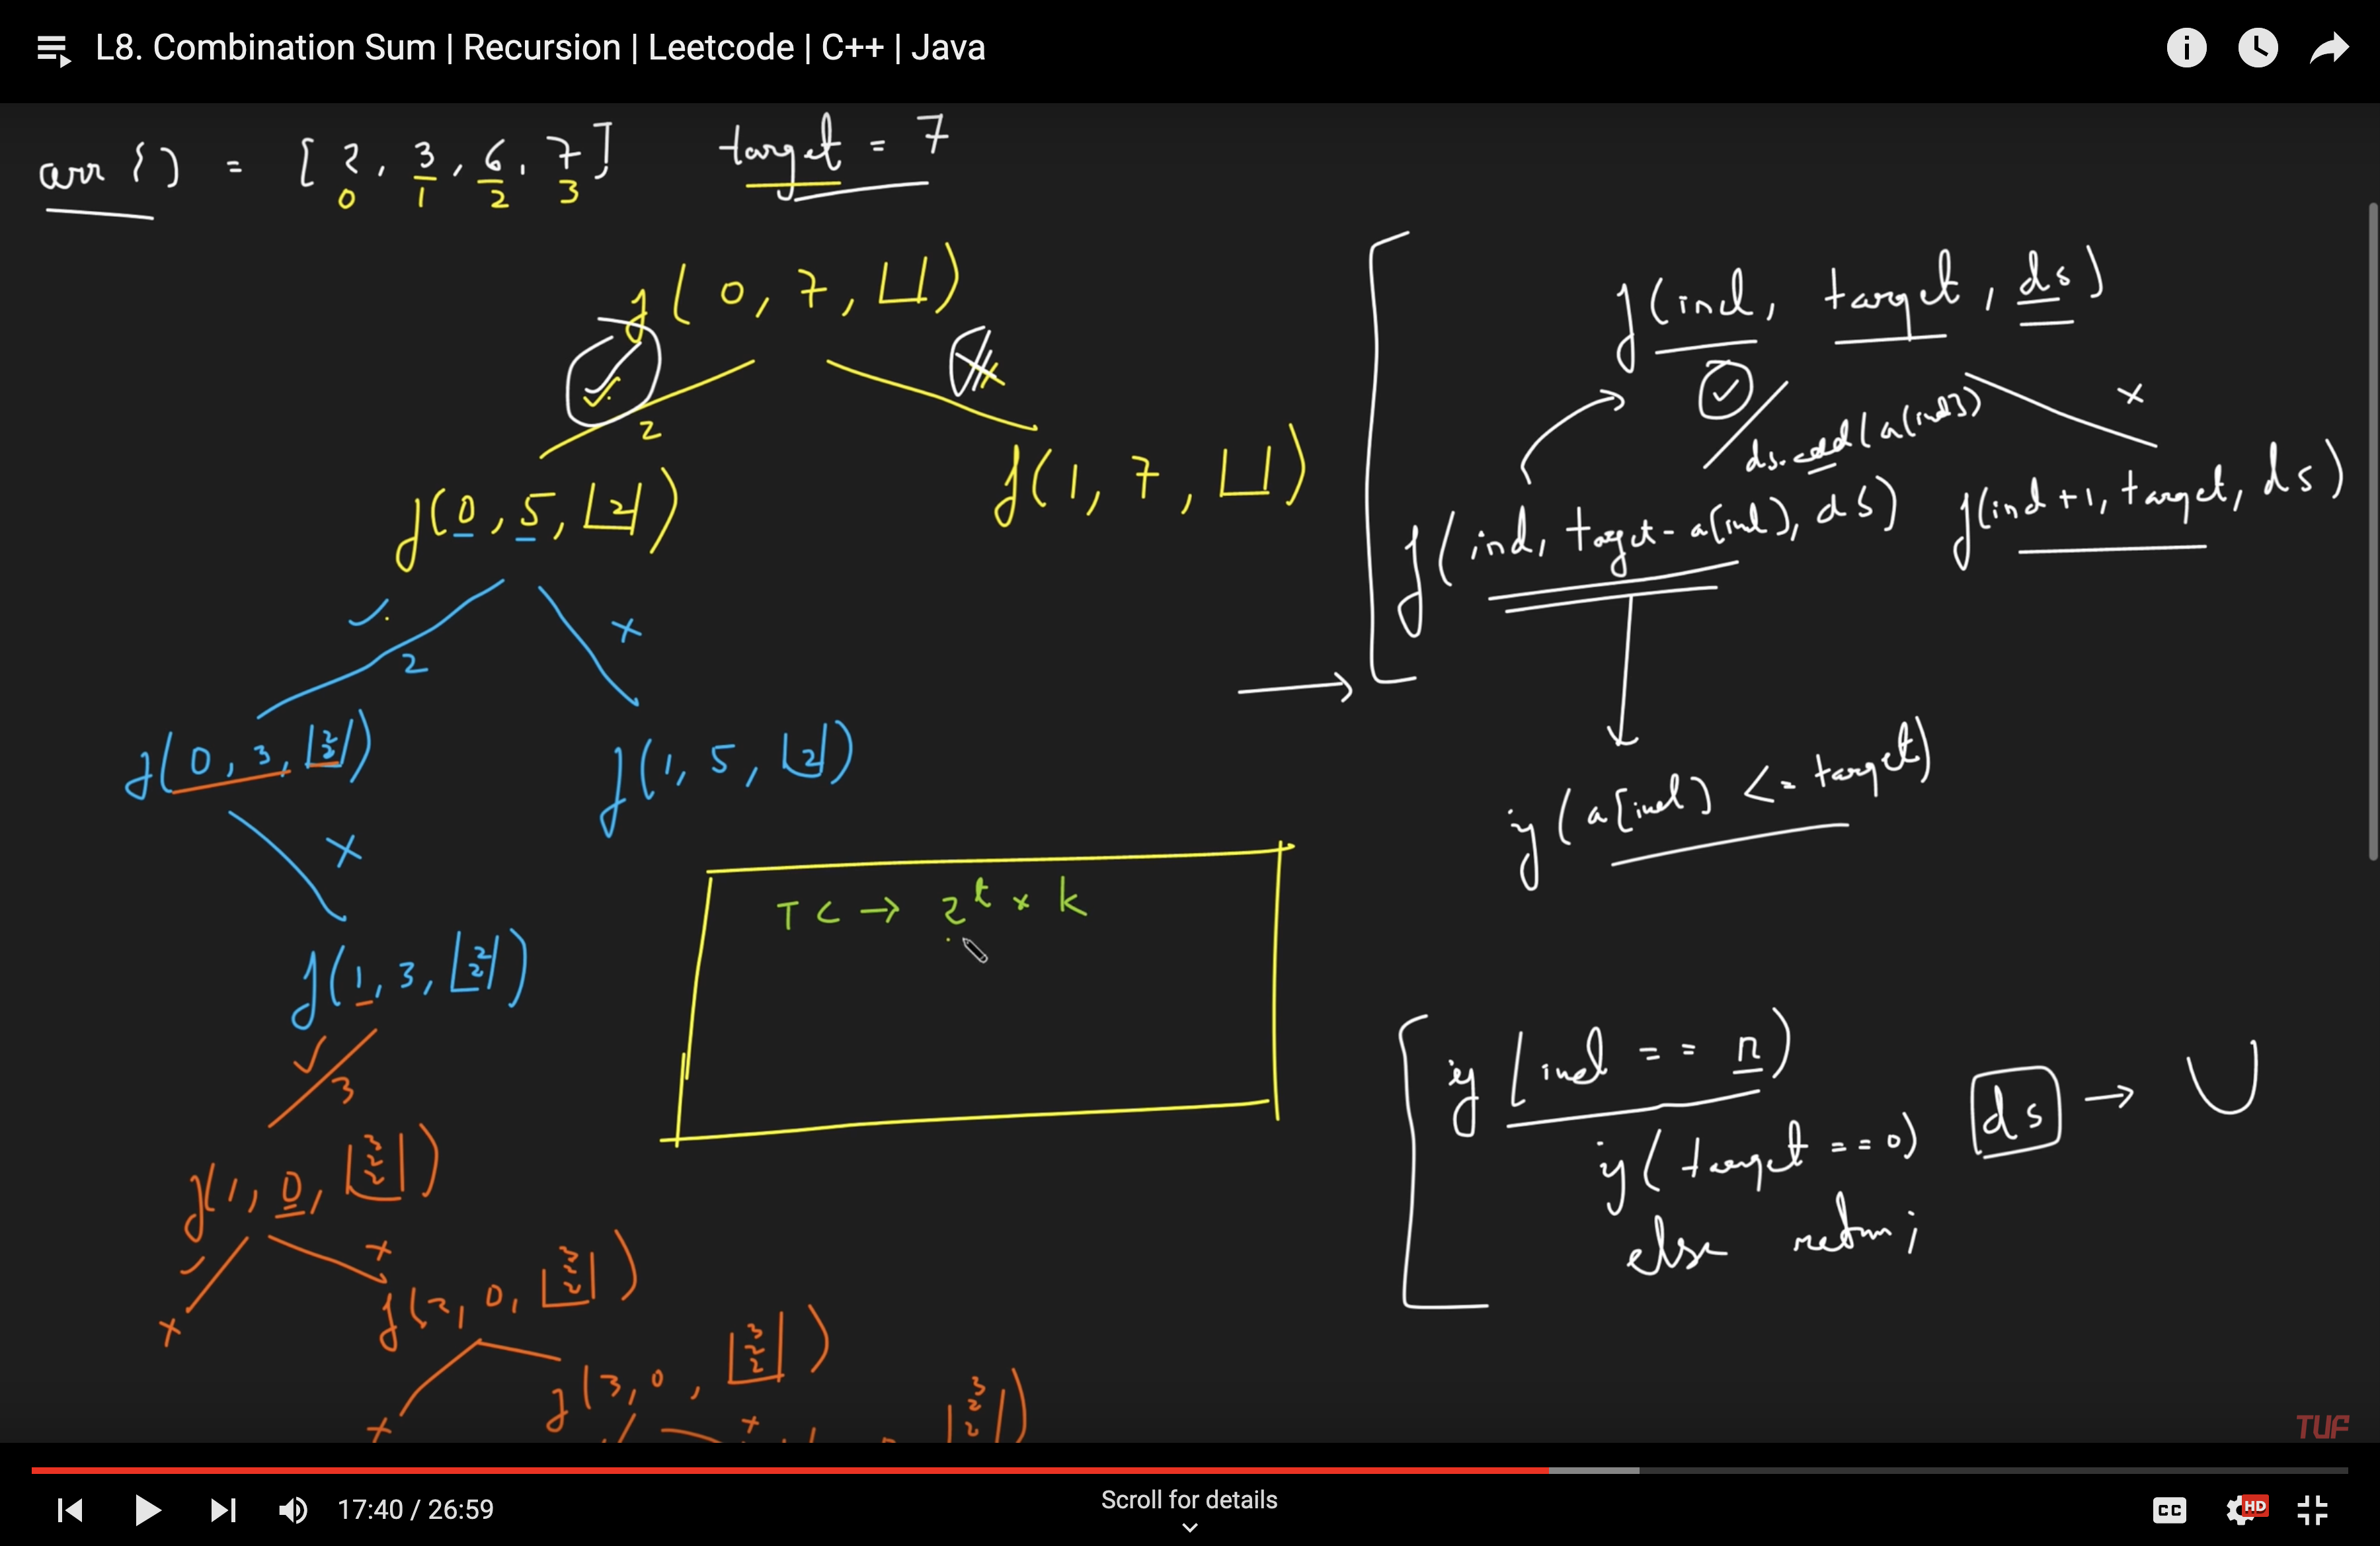 L8. Combination Sum | Recursion | Leetcode | C++ | Java
arr [ ] = [ 2, 3, 6, 7 ] target = 7
0 1 2 3
f( 0, 7, )
2
f( 0, 5, 2 )
f( 1, 7, )
2
×
f( 0, 3, 2 2 )
f( 1, 5, 2 )
×
f( 1, 3, 2 2 )
3
f( 1, 0, 3 2 2 )
×
×
f( 2, 0, 3 2 2 )
×
f( 3, 0, 3 2 2 )
×
3 2 2 )
TC → 2^t × k
f(ind, target, ds)
×
ds.add(a[ind])
f(ind, target-a[ind], ds)
f(ind+1, target, ds)
if (a[ind] <= target)
if (ind == n)
if (target == 0) ds →
else return;
TUF
17:40 / 26:59
Scroll for details
CC
HD